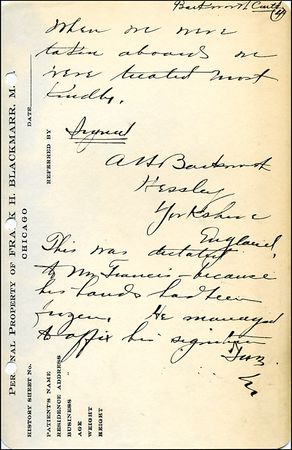 Barkworth Cont'd (4)
When we were
taken aboard we
were treated most
kindly.
Signed
A H Barkworth
Hessley
Yorkshire
England.
This was dictated
to Mr Francis - because
his hands had been
frozen. He managed
to affix his signature
PERSONAL PROPERTY OF FRANK H. BLACKMARR, M.
CHICAGO
DATE
REFERRED BY
HISTORY SHEET No.
PATIENT'S NAME
RESIDENCE ADDRESS
BUSINESS
AGE
WEIGHT
HEIGHT